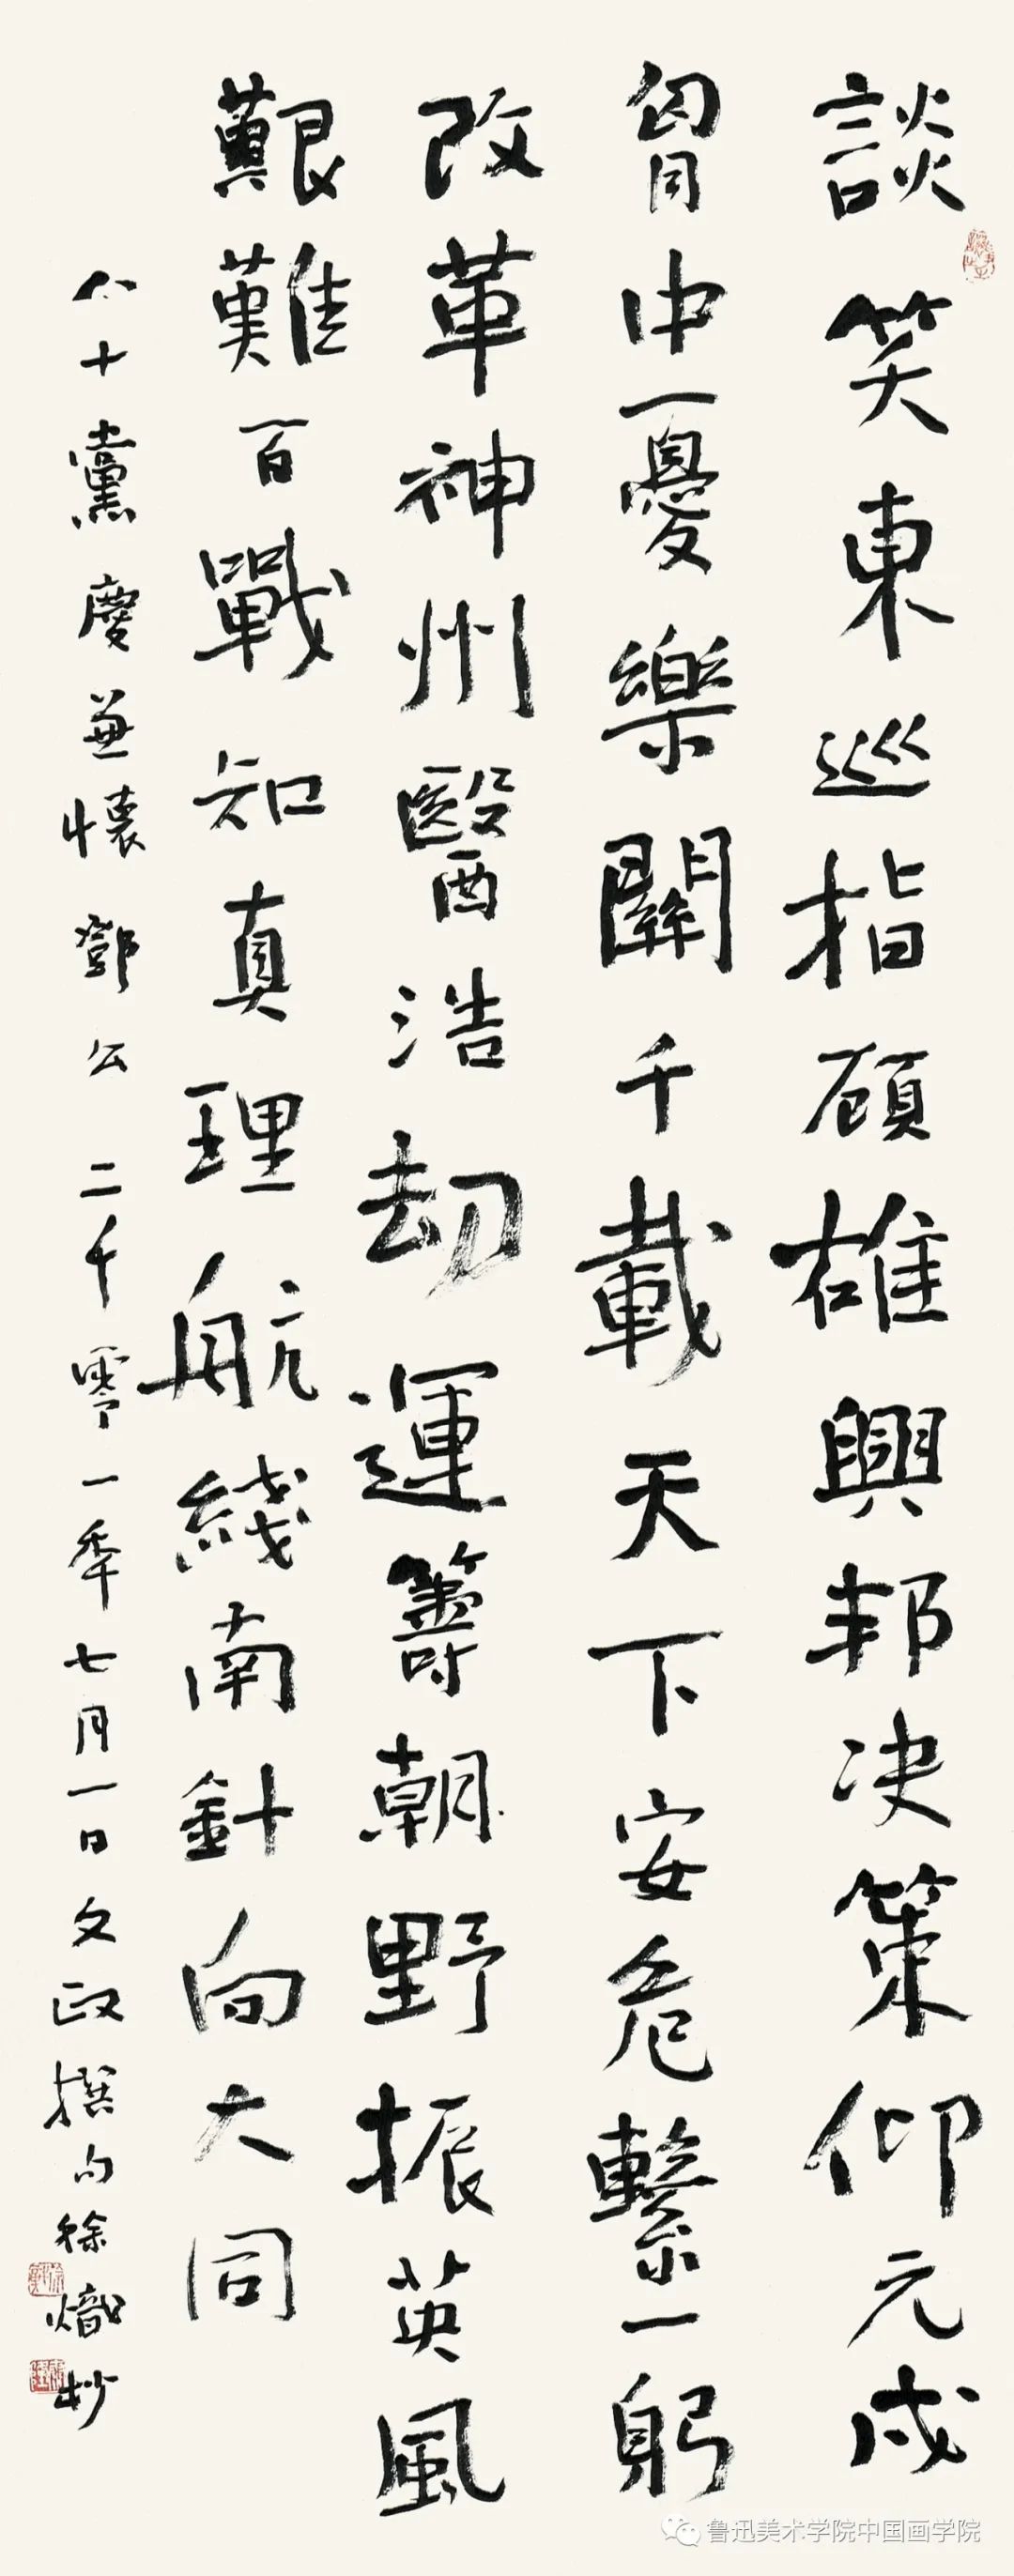 談笑東巡指顧雄興邦决策仰元戎
胷中憂樂關千載天下安危繫一躬
改革神州醫浩劫運籌朝野振英風
艱難百戰知真理航綫南針向大同
八十黨慶兼懷鄧公二千零一秊七月一日文政撰句徐熾抄
鲁迅美术学院中国画学院